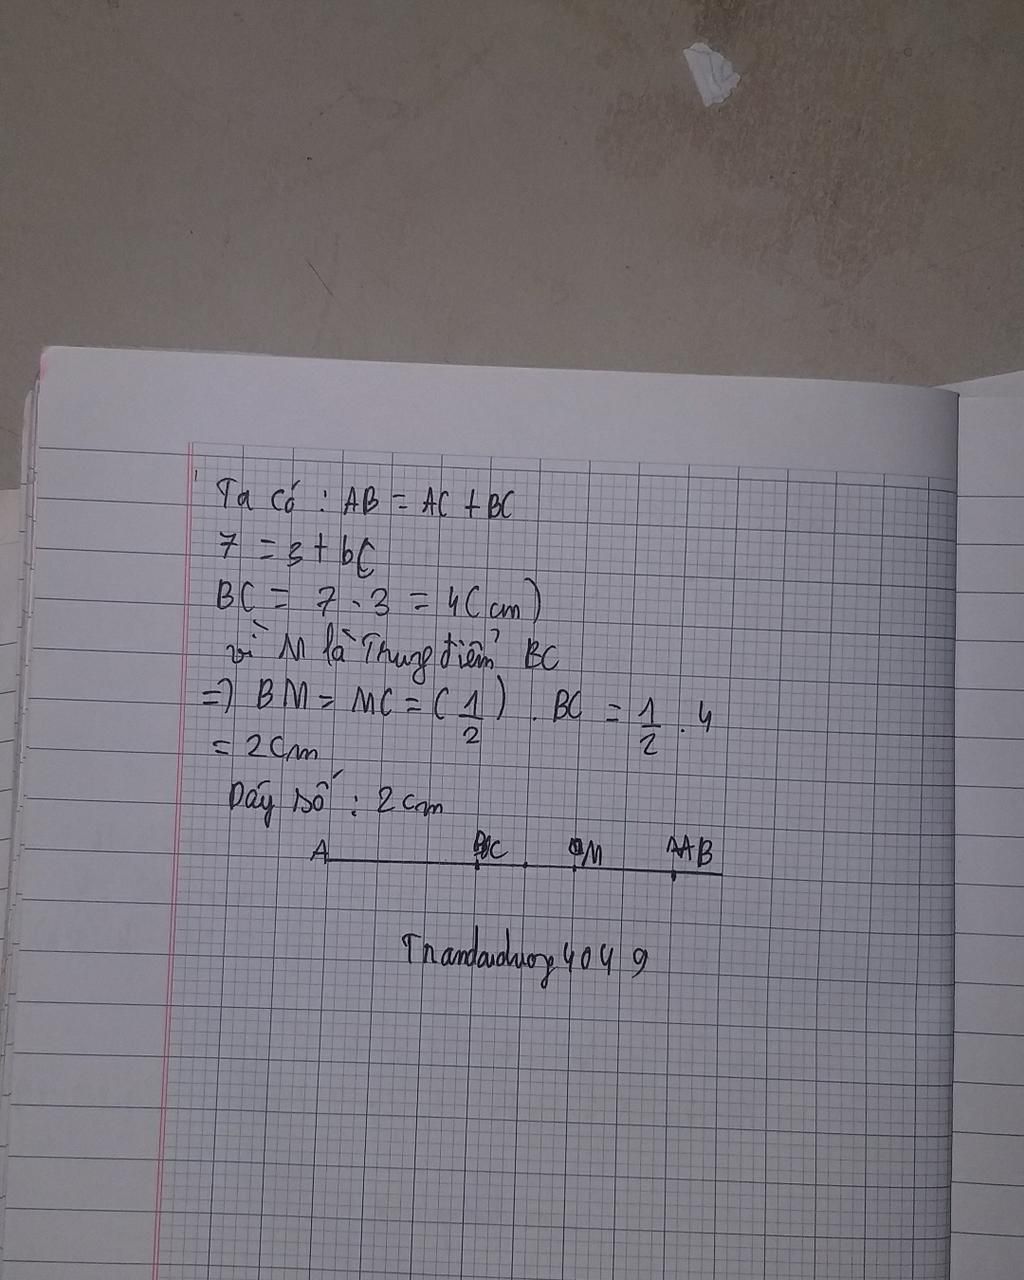 Ta có : AB = AC + BC
7 = 3 + bC
BC = 7 - 3 = 4 (cm)
vì M là Trung điểm BC
=) BM = MC = ( 1/2 ) . BC = 1/2 . 4
= 2cm
Dáy số : 2cm
A C M B
4049